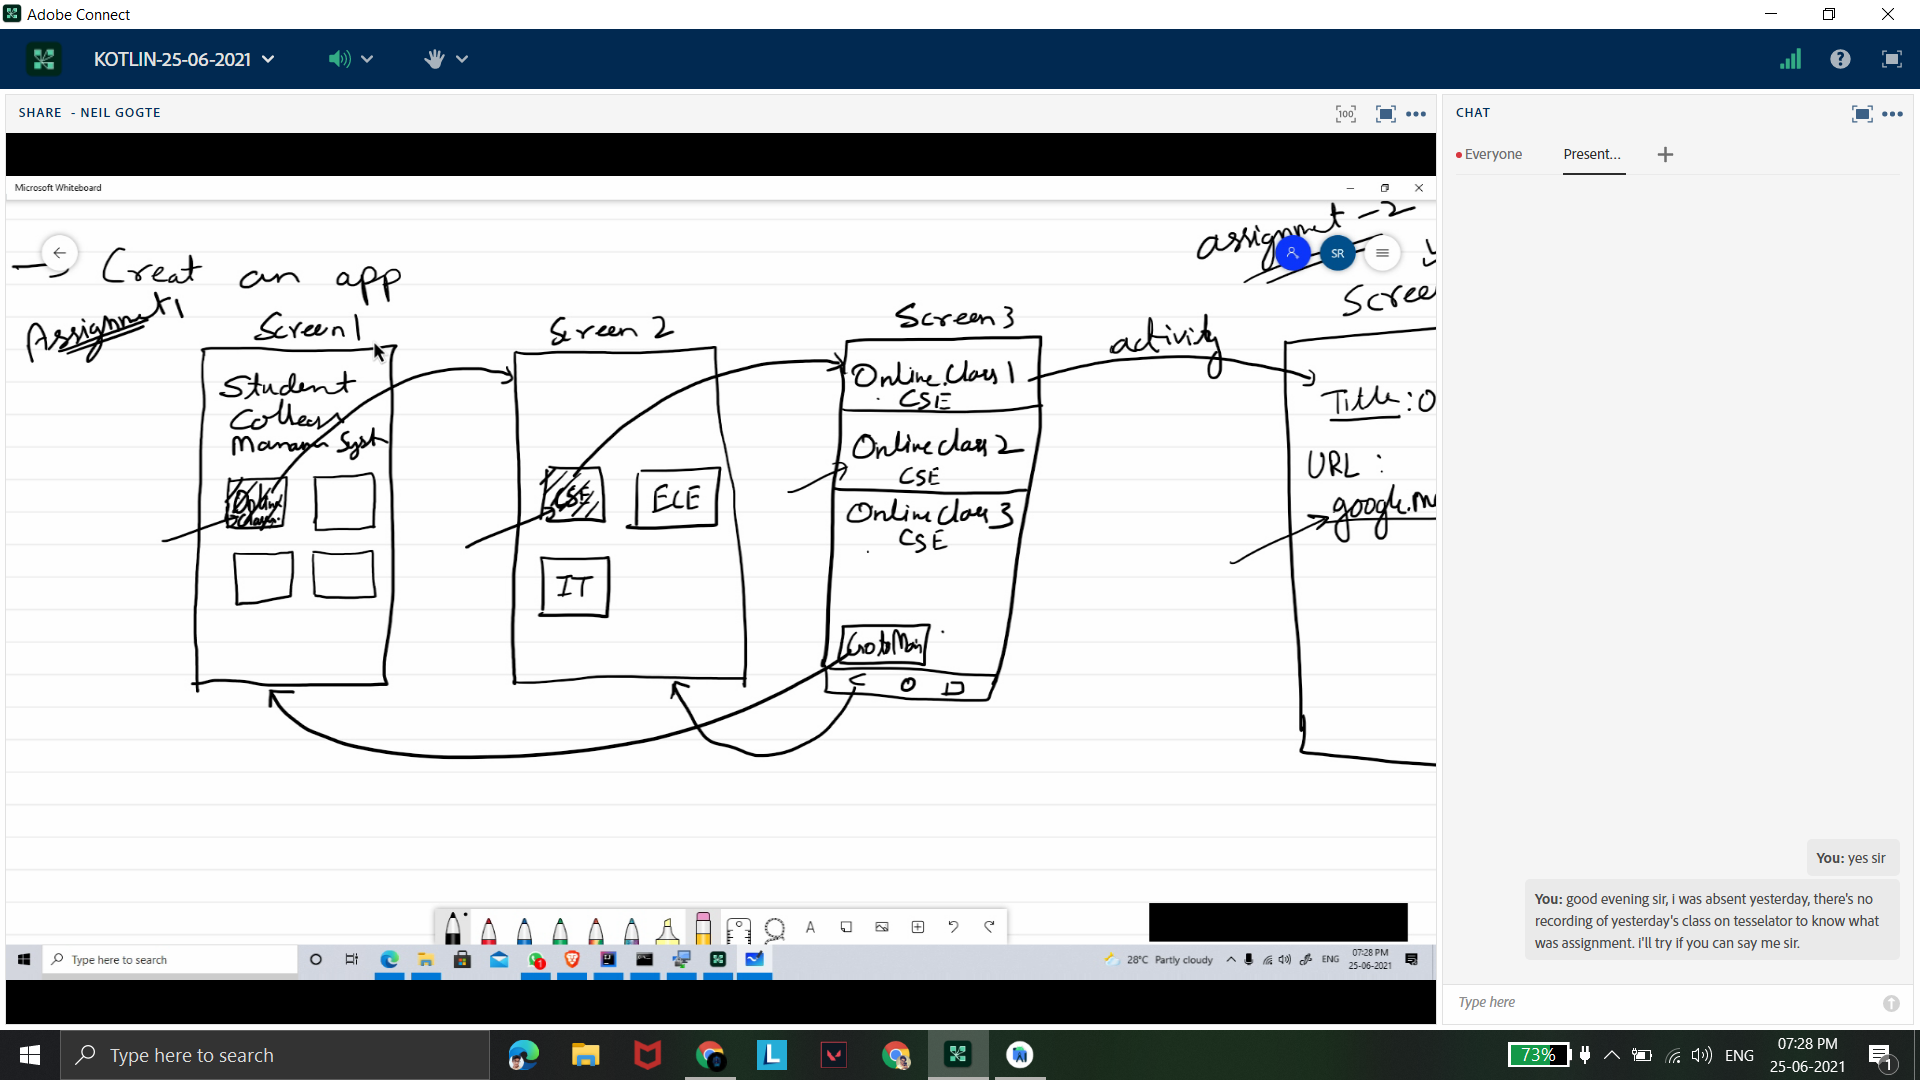 Adobe Connect
KOTLIN-25-06-2021
SHARE - NEIL GOGTE
100
Microsoft Whiteboard
Creat an app
Assignment 1
Screen 1
Student
Manage Syst
Online
Screen 2
CSE
ECE
IT
Screen 3
Online Class 1
CSE
Online class 2
CSE
Online Class 3
CSE
Goto Main
activity
assignment - 2
SR
Scree
Title : O
URL :
google.m
A
Type here to search
28°C Partly cloudy
ENG
07:28 PM
25-06-2021
CHAT
Everyone
Present...
You: yes sir
You: good evening sir, i was absent yesterday, there's no
recording of yesterday's class on tesselator to know what
was assignment. i'll try if you can say me sir.
Type here
Type here to search
L
73%
ENG
07:28 PM
25-06-2021
1